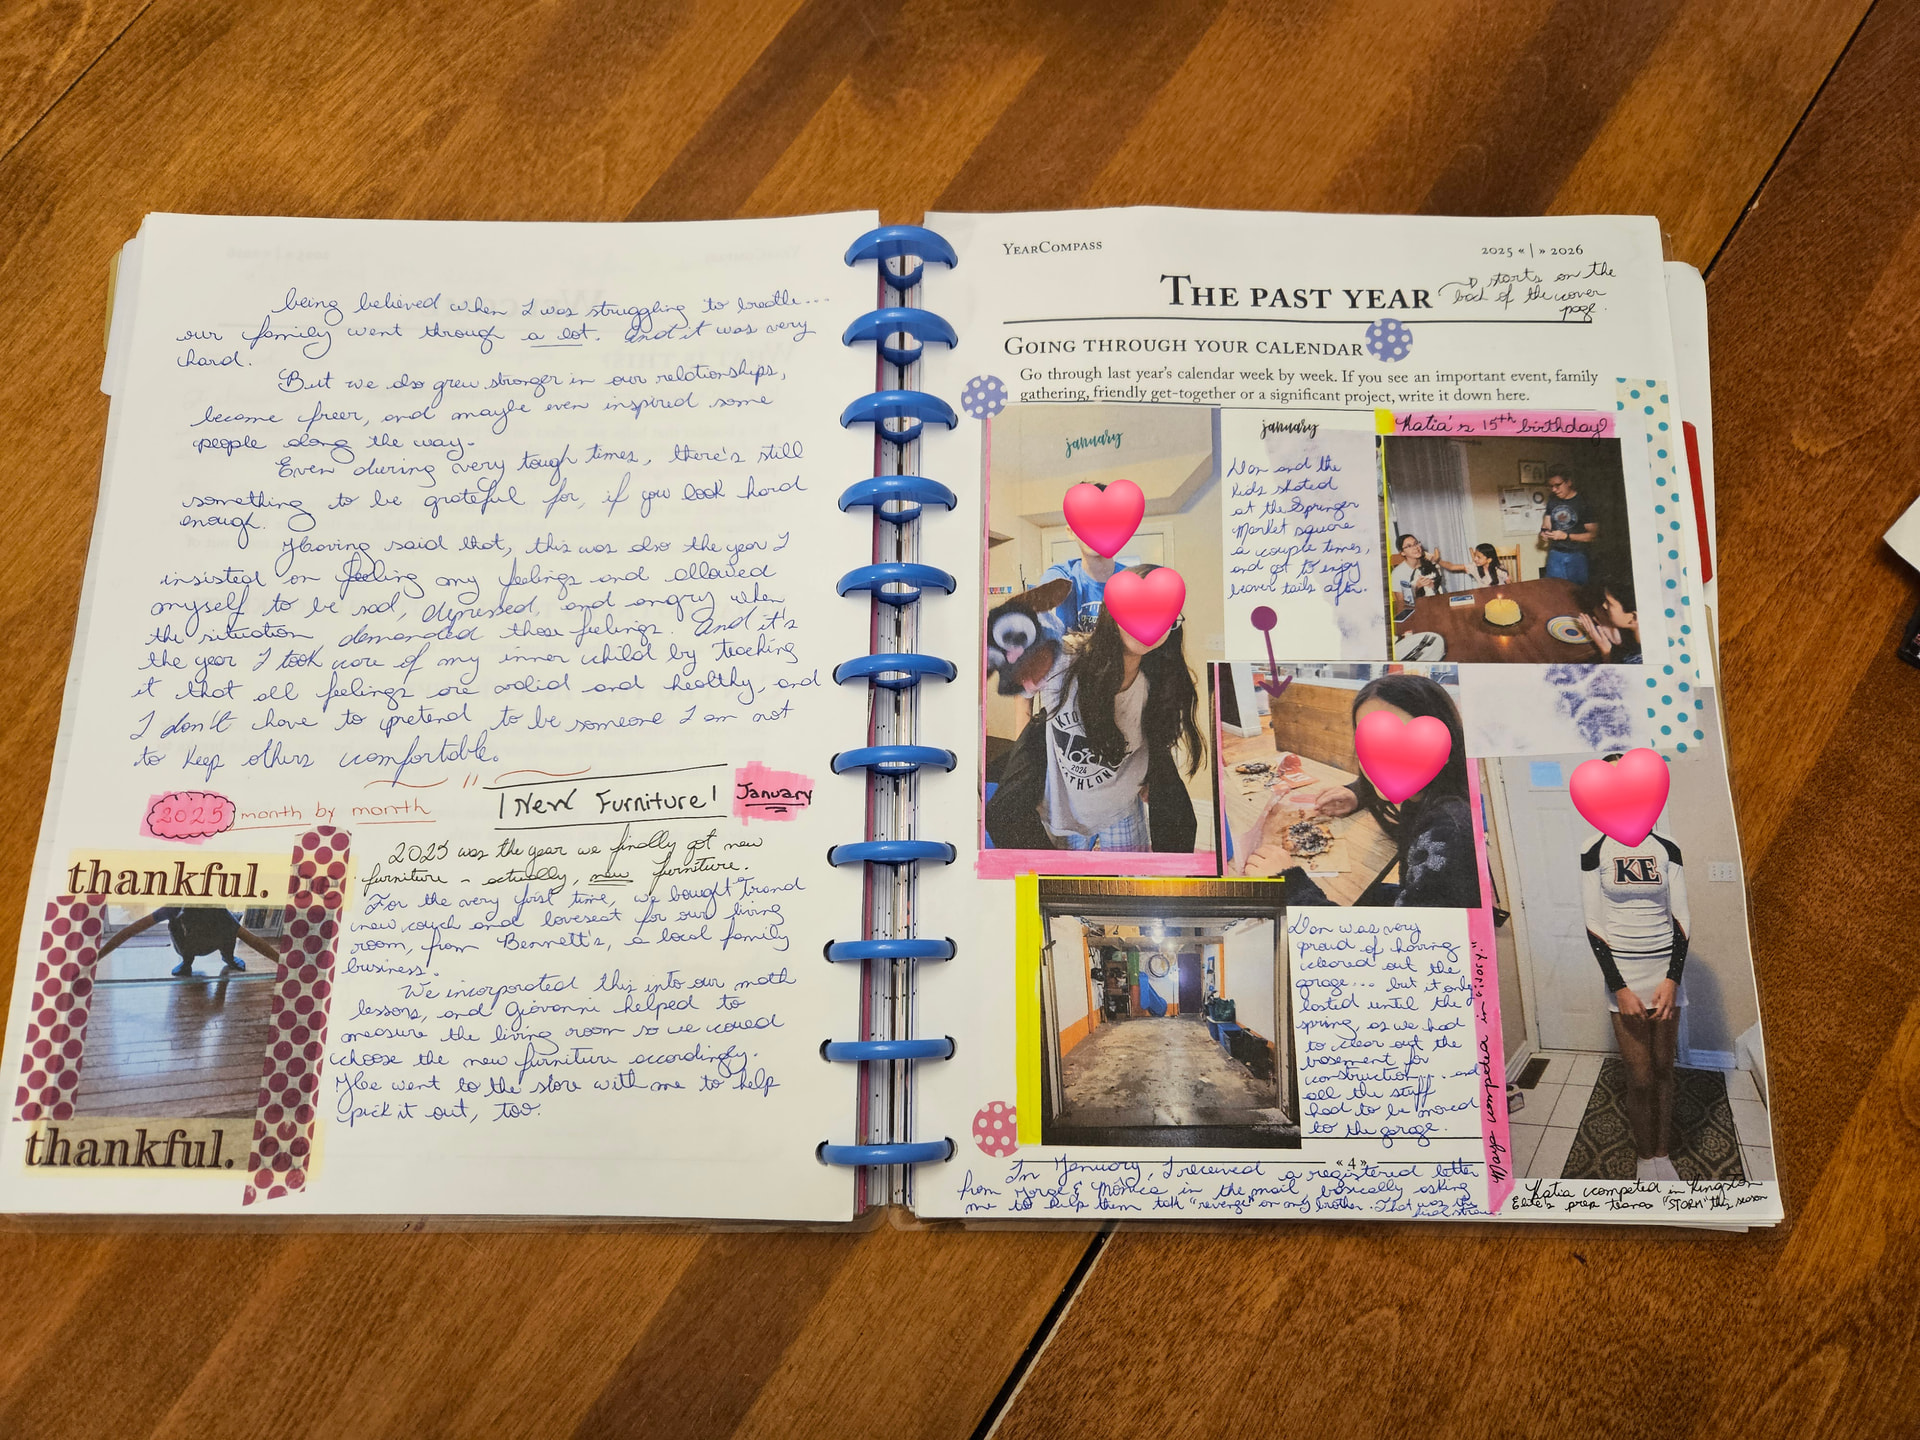 being believed when I was struggling to breathe...
our family went through a lot. And it was very
hard.
But we also grew stronger in our relationships,
became freer, and maybe even inspired some
people along the way.
Even during very tough times, there's still
something to be grateful for, if you look hard
enough.
Having said that, this was also the year I
insisted on feeling my feelings and allowed
myself to be sad, depressed, and angry when
the situation demanded those feelings. And it's
the year I took care of my inner child by teaching
it that all feelings are valid and healthy, and
I don't have to pretend to be someone I am not
to keep others comfortable.
2025 month by month
New Furniture!
January
thankful.
thankful.
2025 was the year we finally got new
furniture - actually, new furniture.
For the very first time, we bought a brand
new couch and loveseat for our living
room, from Bennett's, a local family
business.
We incorporated this into our math
lessons, and Giovanni helped to
measure the living room so we could
choose the new furniture accordingly.
He went to the store with me to help
pick it out, too.
YearCompass
2025 « | » 2026
The past year
starts on the
back of the cover
page.
Going through your calendar
Go through last year's calendar week by week. If you see an important event, family
gathering, friendly get-together or a significant project, write it down here.
january
january
Dan and the
kids skated
at the Springer
Market square
a couple times,
and got to enjoy
beaver tails after.
Katia's 15th birthday
KE
2024
Dan was very
proud of having
cleared out the
garage... but it only
lasted until the
spring, as we had
to clear out the
basement for
construction... and
all the stuff
had to be moved
to the garage.
Maya competed in "ivory."
« 4 »
In January, I received a registered letter
from Jorge & Mónica in the mail basically asking
me to help them take "revenge" on my brother. That was the
final straw.
Katia competed in Kingston
Elite's prep teams "STORM" this season